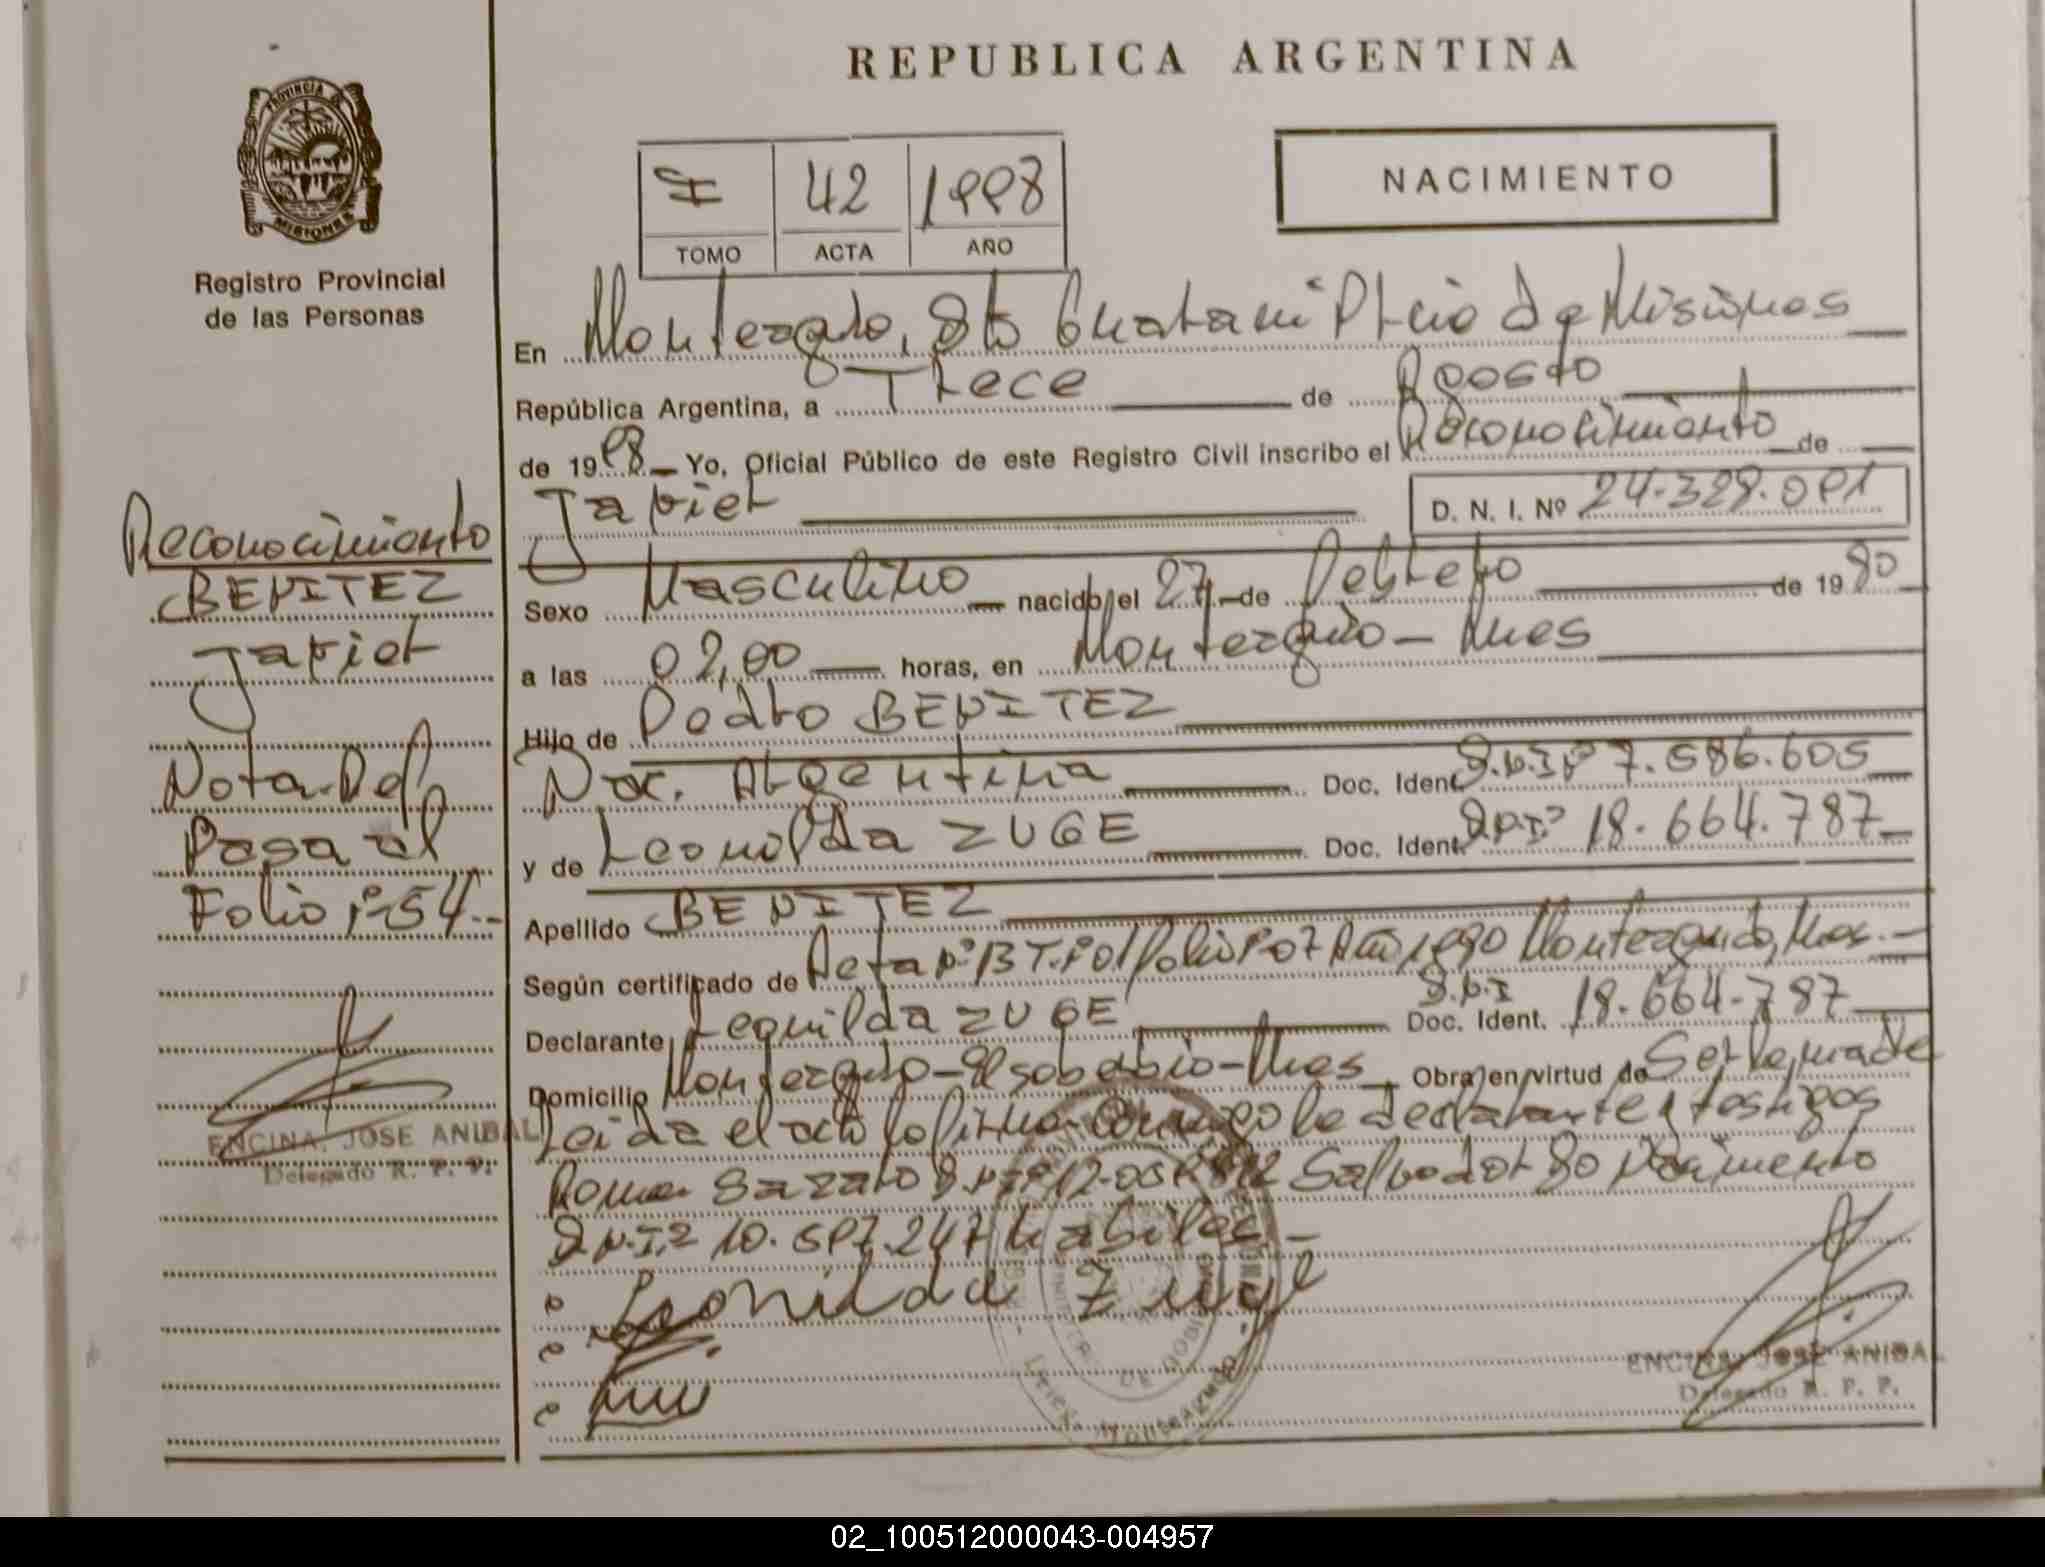 REPUBLICA ARGENTINA
PROVINCIA DE
MISIONES
Registro Provincial
de las Personas
NACIMIENTO
42 1998
TOMO ACTA AÑO
En Monteagudo, Dto Guarani Pcio de Misiones
República Argentina, a Trece de Agosto
de 1998 Yo, Oficial Público de este Registro Civil inscribo el Reconocimiento de
Javier D. N. I. Nº 24.329.091
Sexo Masculino nacido el 27 de Febrero de 1980
a las 02,00 horas, en Monteagudo - Mnes
Hijo de Pedro BENITEZ
Nac. Argentina Doc. Ident. D.N.I Nº 7.586.605
y de Leonilda ZUGE Doc. Ident. D.N.I º 18.664.787
Apellido BENITEZ
Según certificado de Acta Nº 13 Tº 01 Folio Nº 07 Año 1980 Monteagudo, Mnes.-
Declarante Leonilda ZUGE Doc. Ident. D.N.I 18.664.787
Domicilio Monteagudo - El soberbio - Mnes Obra en virtud de Ser la madre
Leida el acta la firma conmigo la declarante y testigos
Roma D.N.I Nº 12.05 Salvador Do Nacimento
D.N.I.º 10.597.247 habiles.-
Leonilda Zuge
ENCINA, JOSE ANIBAL
Delegado R. P. P.
Reconocimiento
BENITEZ
Javier
Nota-Del
Pasa al
Folio Nº 54.-
ENCINA, JOSE ANIBAL
Delegado R. P. P.
02_100512000043-004957